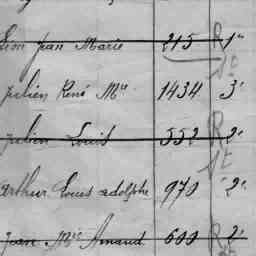 Léon Jean Marie 215 R 1e
Julien René Mie 1434 3e
Julien Louis 552 R 2e
Arthur Louis adolphe 970 2e
Jean Mie Amand 600 R 2e